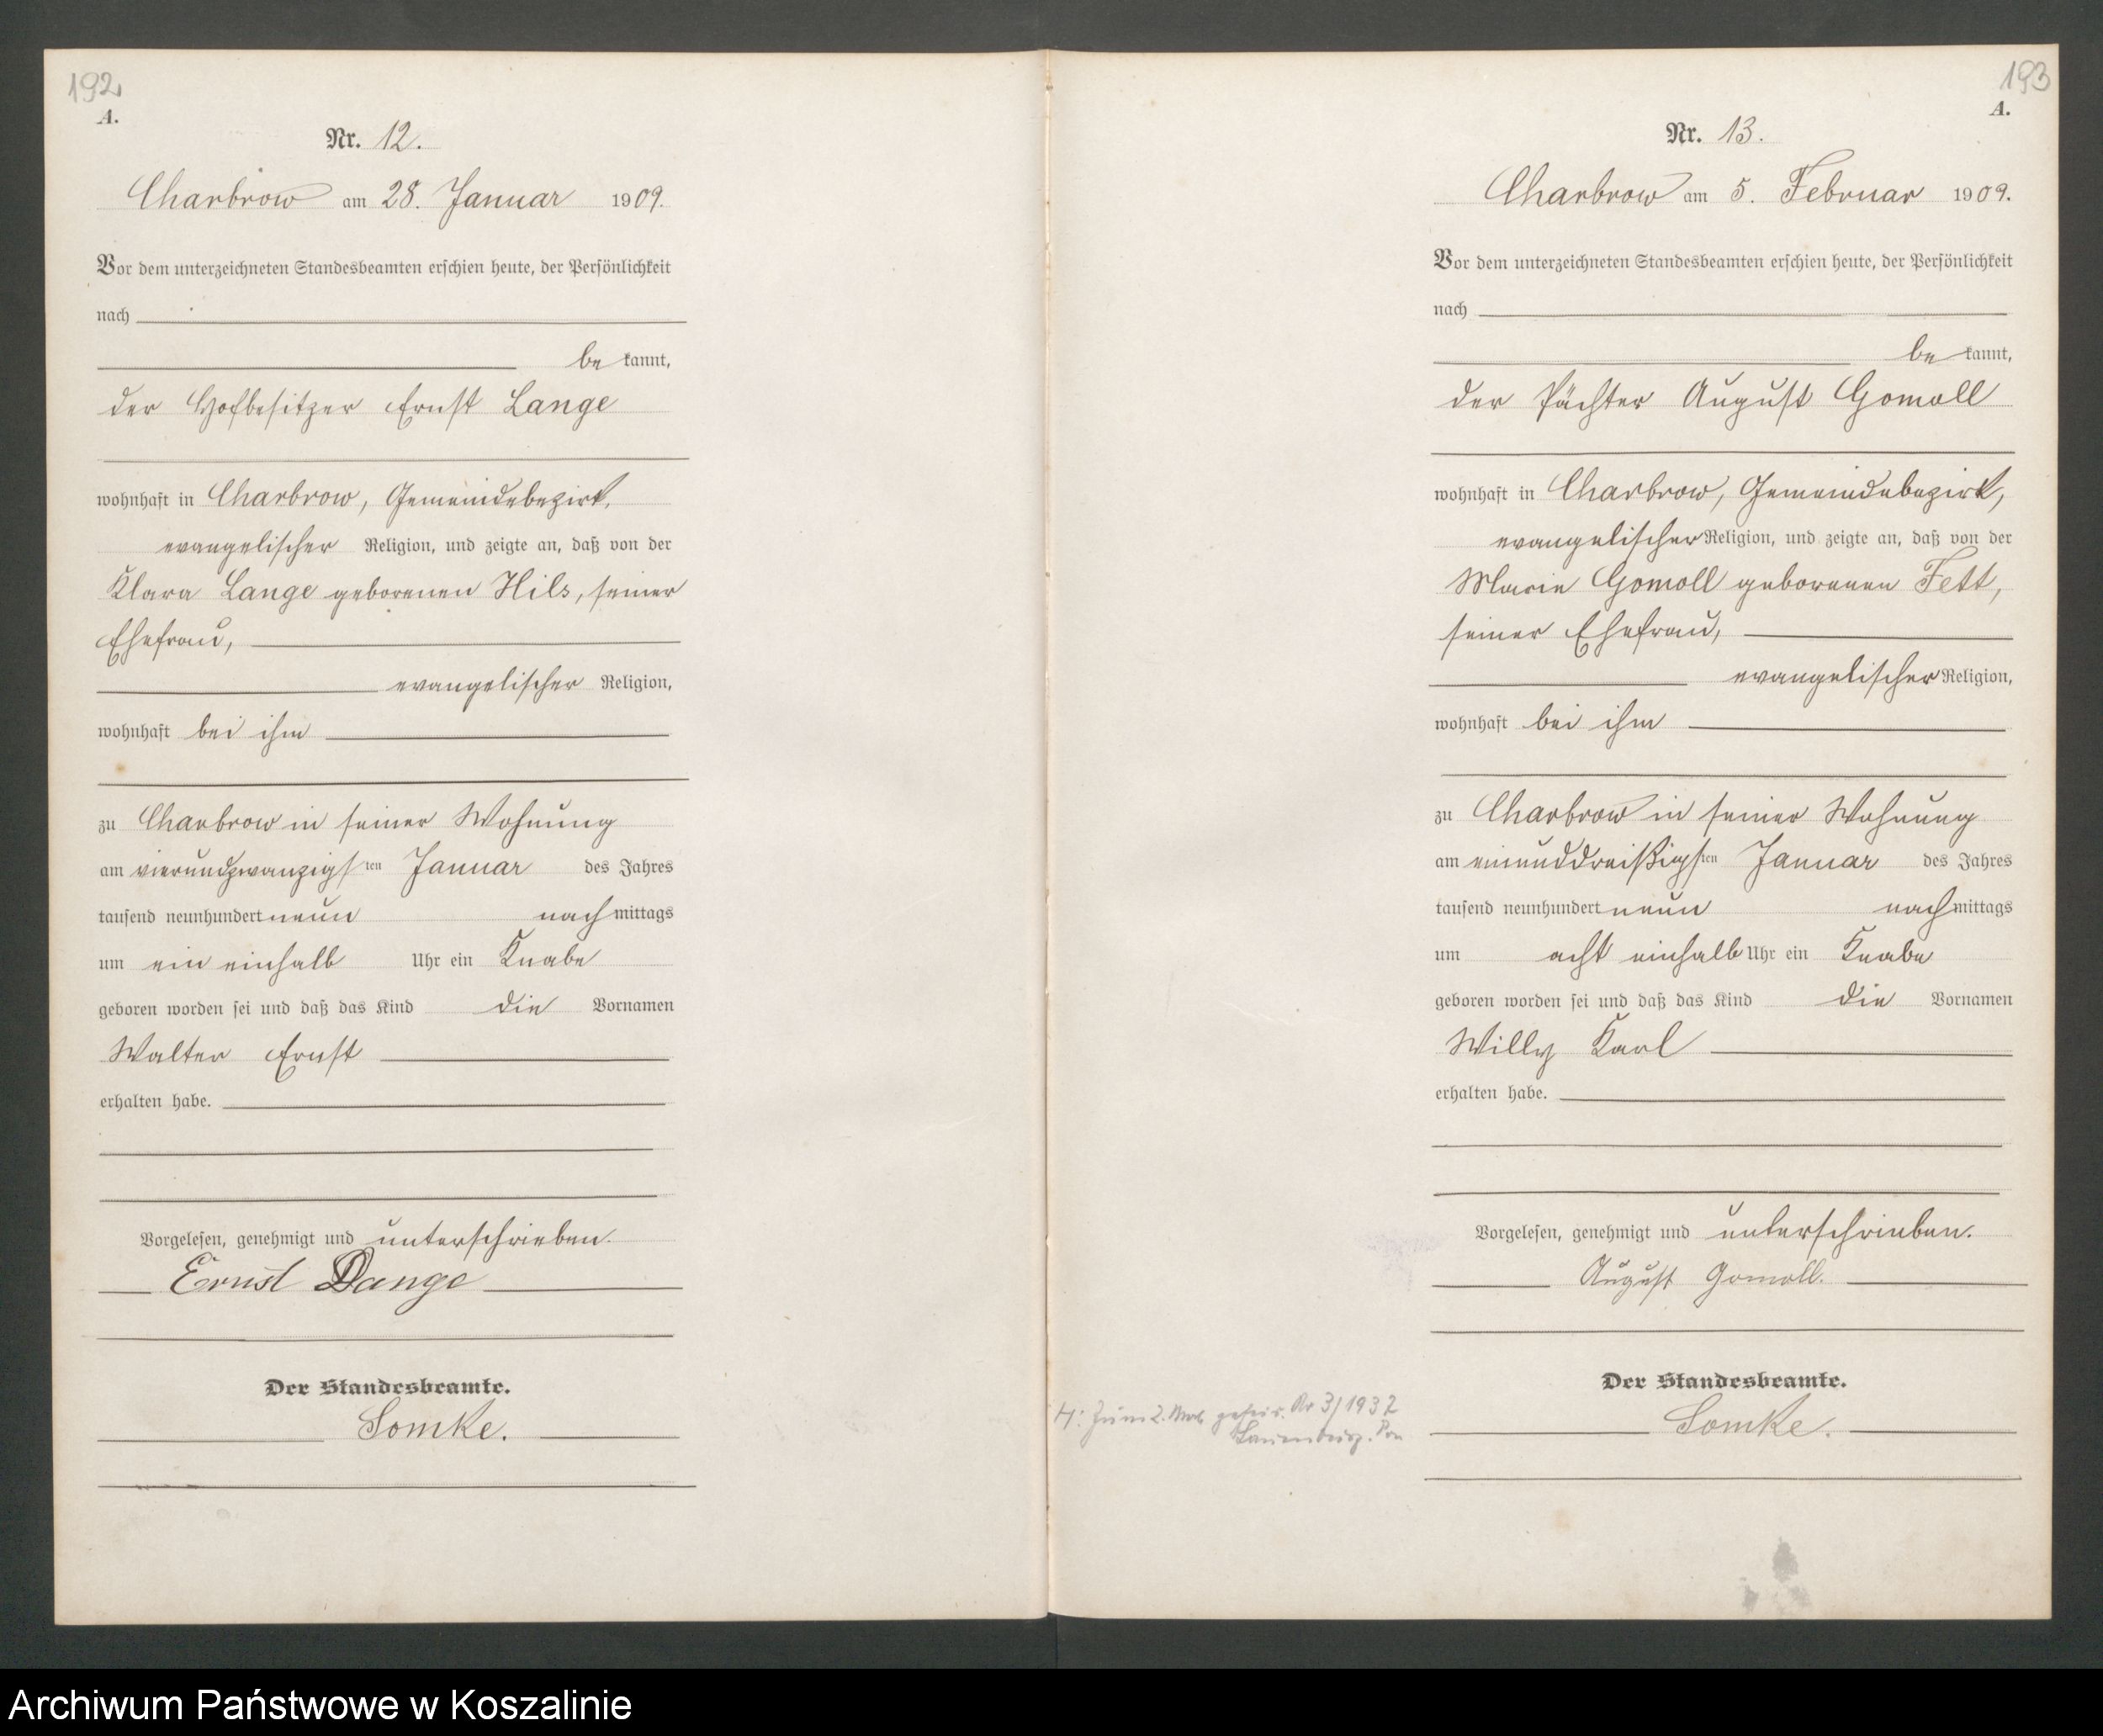 192
A.
Nr. 12.
Charbrow am 28. Januar 1909.
Vor dem unterzeichneten Standesbeamten erschien heute, der Persönlichkeit
nach
be kannt,
der Hofbesitzer Ernst Lange
wohnhaft in Charbrow, Gemeindebezirk,
evangelischer Religion, und zeigte an, daß von der
Klara Lange geborenen Hils, seiner
Ehefrau,
evangelischer Religion,
wohnhaft bei ihm
zu Charbrow in seiner Wohnung
am vierundzwanzigsten Januar des Jahres
tausend neunhundert neun nachmittags
um ein einhalb Uhr ein Knabe
geboren worden sei und daß das Kind die Vornamen
Walter Ernst
erhalten habe.
Vorgelesen, genehmigt und unterschrieben.
Ernst Lange
Der Standesbeamte.
Somke.
193
A.
Nr. 13.
Charbrow am 5. Februar 1909.
Vor dem unterzeichneten Standesbeamten erschien heute, der Persönlichkeit
nach
be kannt,
der Pächter August Gomoll
wohnhaft in Charbrow, Gemeindebezirk,
evangelischer Religion, und zeigte an, daß von der
Marie Gomoll geborenen Fett,
seiner Ehefrau,
evangelischer Religion,
wohnhaft bei ihm
zu Charbrow in seiner Wohnung
am einunddreißigsten Januar des Jahres
tausend neunhundert neun nachmittags
um acht einhalb Uhr ein Knabe
geboren worden sei und daß das Kind die Vornamen
Willy Karl
erhalten habe.
Vorgelesen, genehmigt und unterschrieben.
August Gomoll.
Der Standesbeamte.
Somke.
H: Zum 2. Mal geheir. Nr 3/1937
Lauenburg. Pom
Archiwum Państwowe w Koszalinie